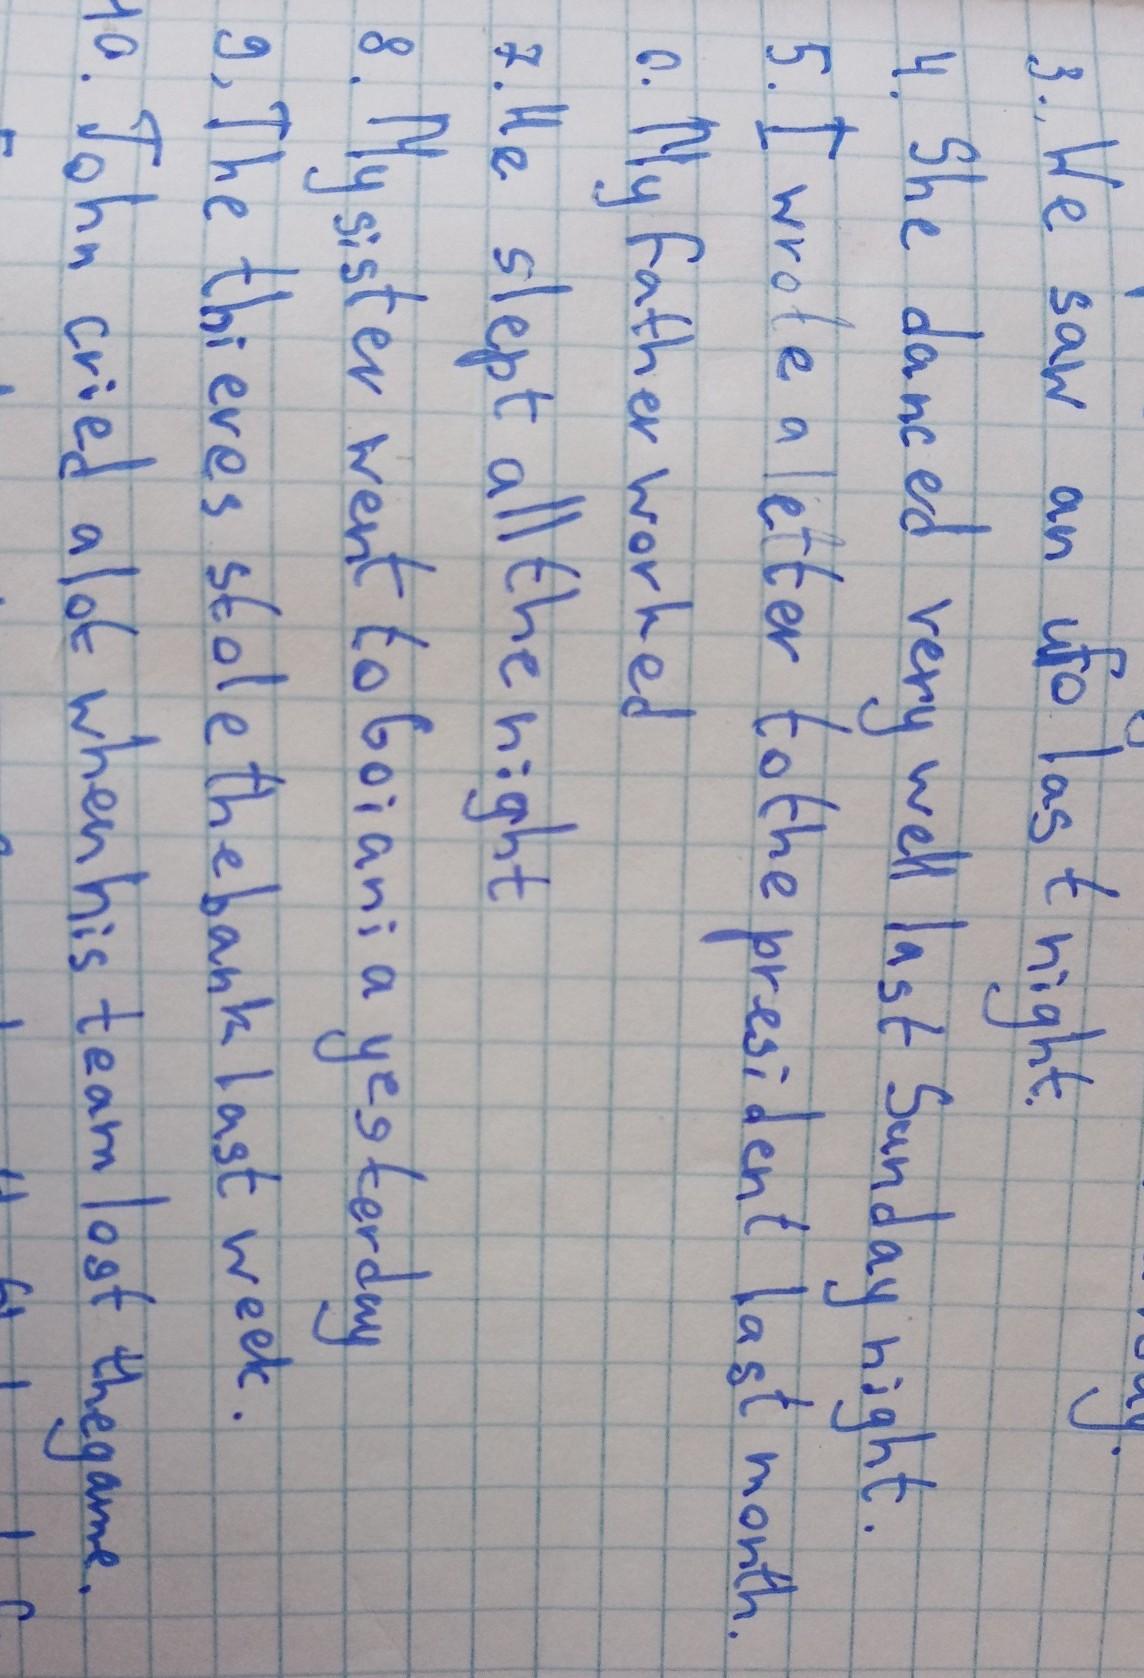 3. We saw an ufo last night.
4. She danced very well last Sunday night.
5. I wrote a letter to the president last month.
6. My father worked
7. He slept all the night
8. My sister went to Goiania yesterday
9. The thieves stole the bank last week.
10. John cried alot when his team lost the game.